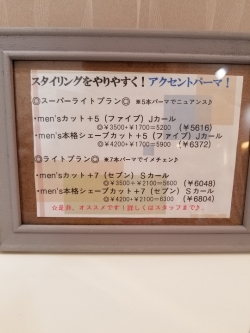 スタイリングをやりやすく！アクセントパーマ！
◎スーパーライトプラン◎ ※5本パーマでニュアンス♪
・men'sカット＋5（ファイブ）Jカール
◎￥3500+￥1700=5200 （￥5616）
・men's本格シェーブカット＋5（ファイブ）Jカール
◎￥4200+￥1700=5900 （￥6372）
◎ライトプラン◎ ※7本パーマでイメチェン♪
・men'sカット＋7（セブン）Sカール
◎￥3500+￥2100=5600 （￥6048）
・men's本格シェーブカット＋7（セブン）Sカール
◎￥4200+￥2100=6300 （￥6804）
☆是非、オススメです！詳しくはスタッフまで♪